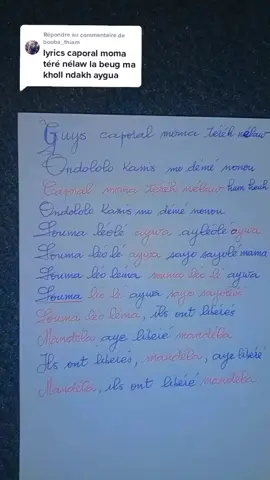 Répondre au commentaire de
booba_thiam
lyrics caporal moma
téré nélaw la beug ma
kholl ndakh aygua
Guys caporal moma téréh nélaw
Ondololo Kamis mo démé nonou
Caporal moma téréh nélaw hum heuh
Ondololo Kamis mo démé nonou
Souma léolé aywa ayléolé aywa
Souma léo lé aywa sayo sayolé mama
Souma léo léma souma léo lé aywa
Souma léo lé aywa sayo sayolés
Souma léo léma, ils ont libérés
Mandéla aye libéré mandéla
Ils ont libérés, mandéla, aye libéré
Mandéla, ils ont libéré mandéla